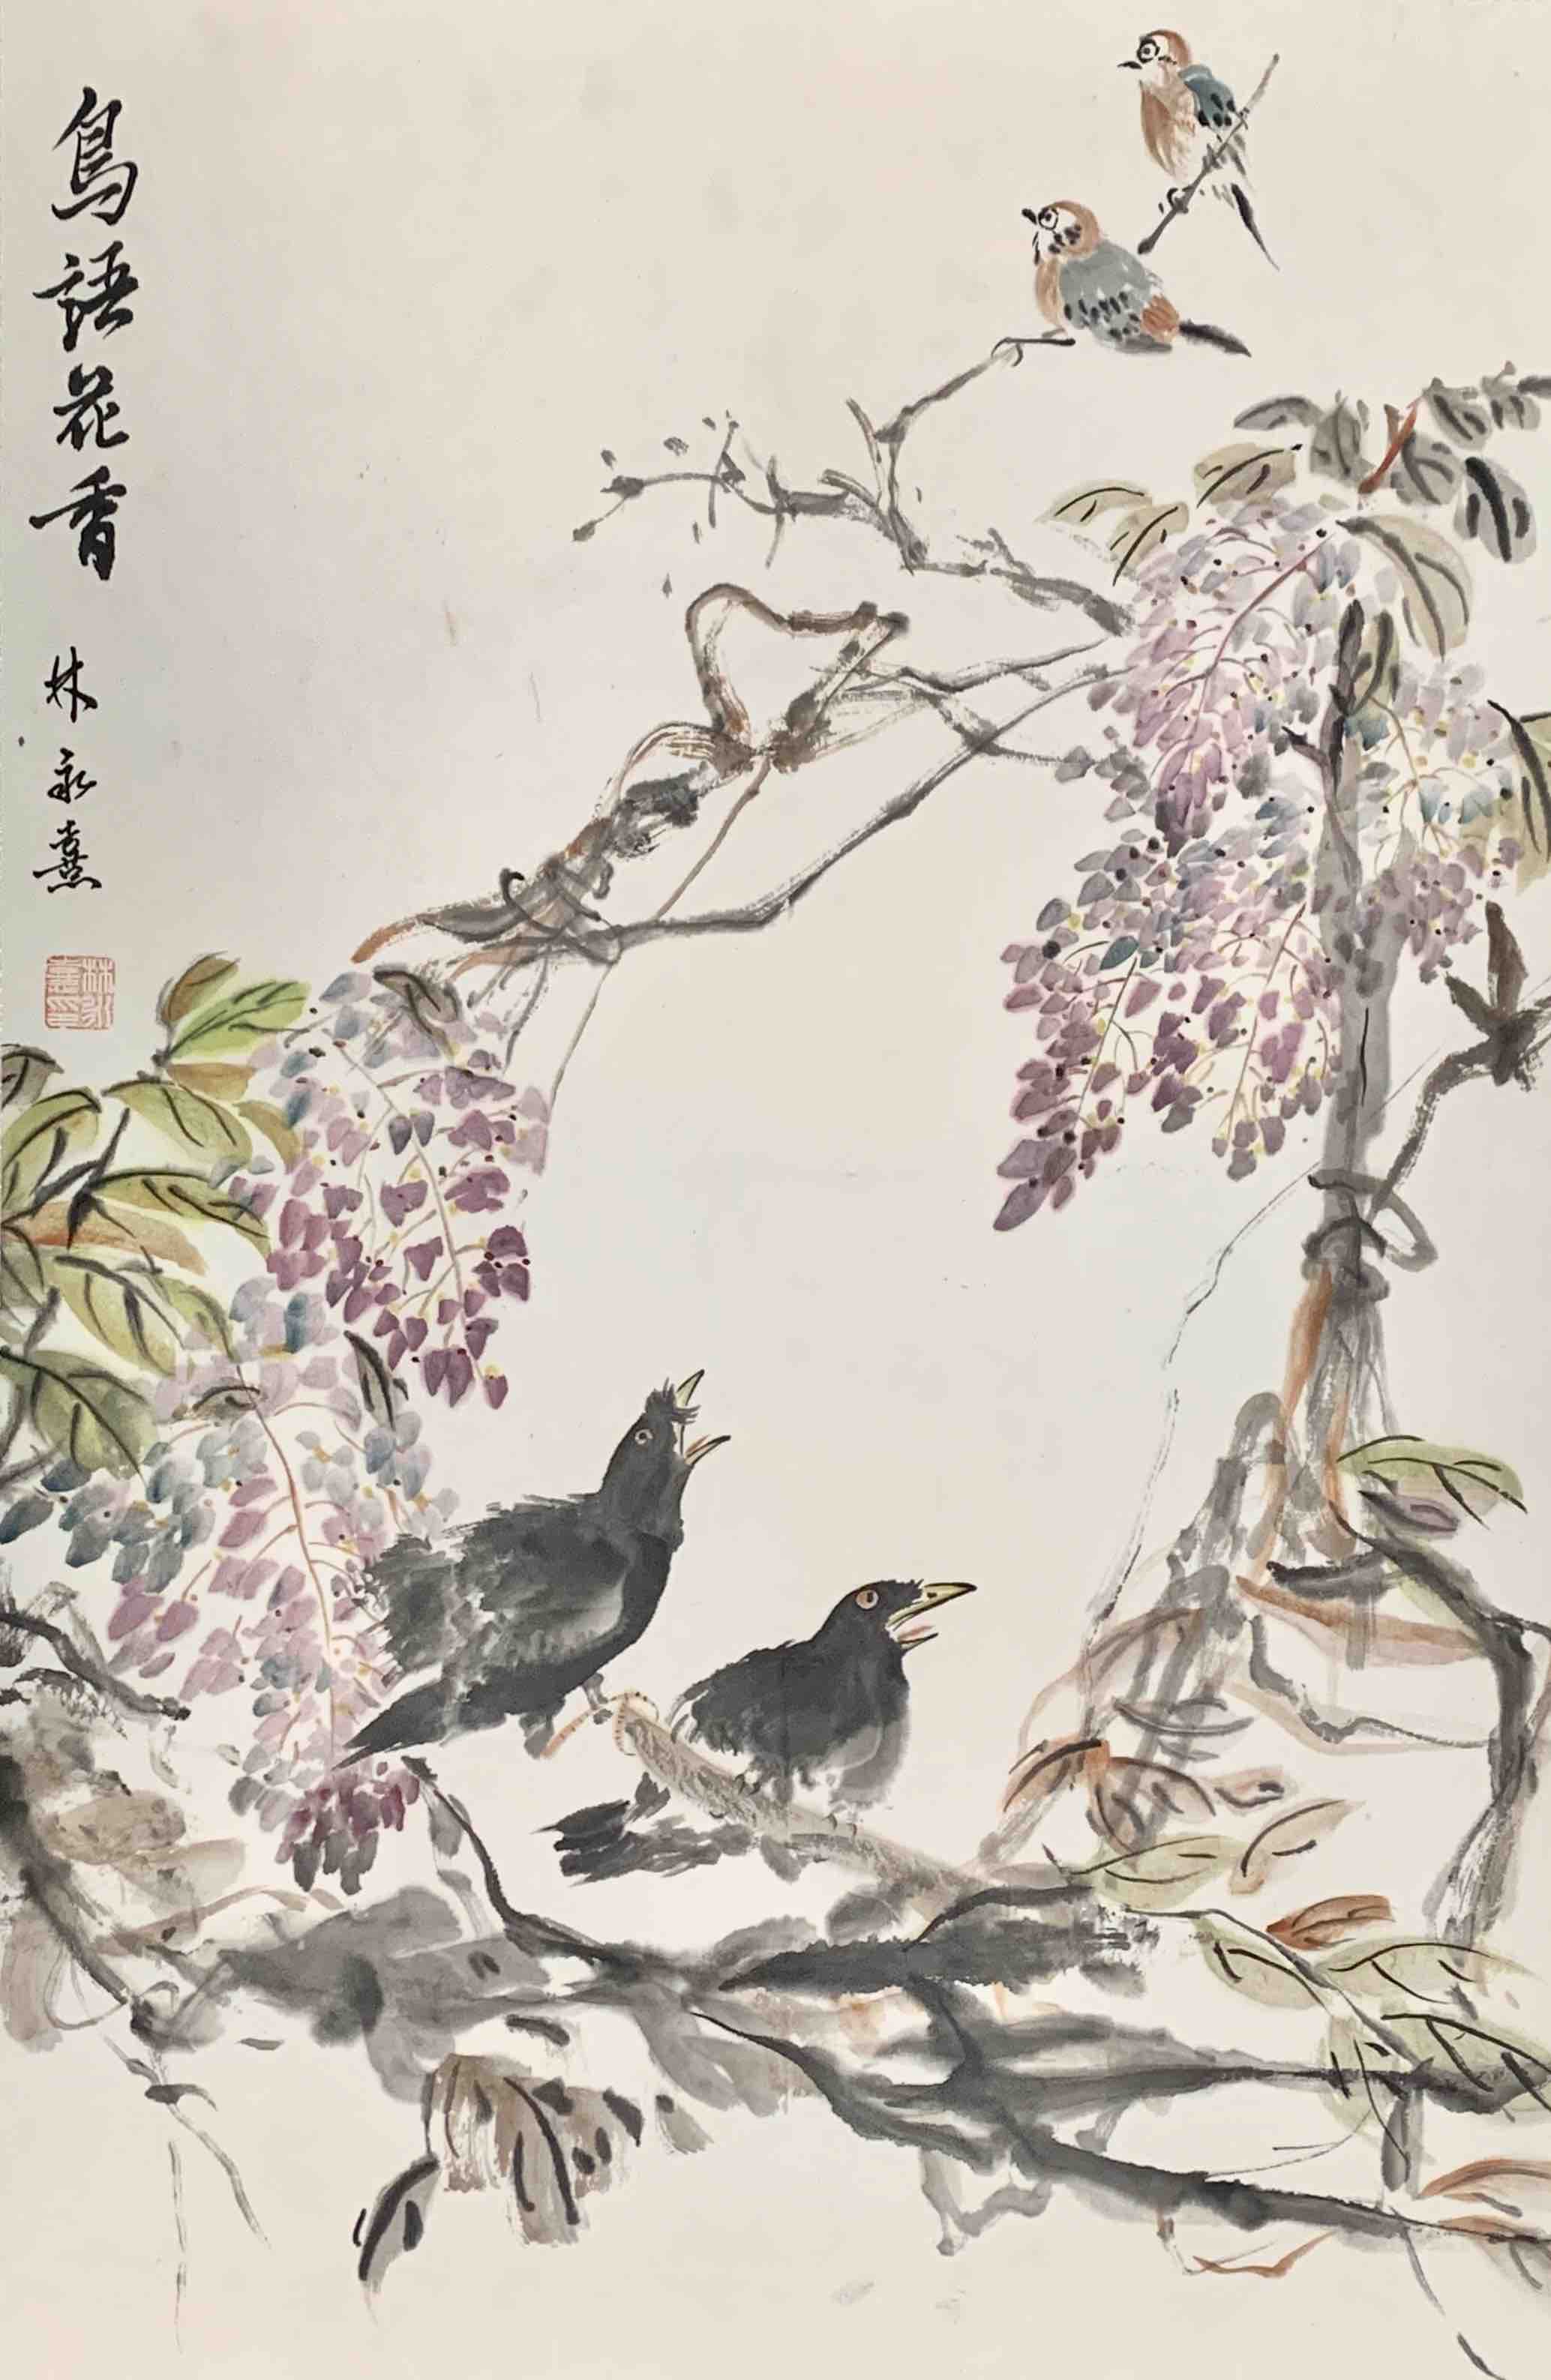 鳥語花香
林永熹
林永熹印